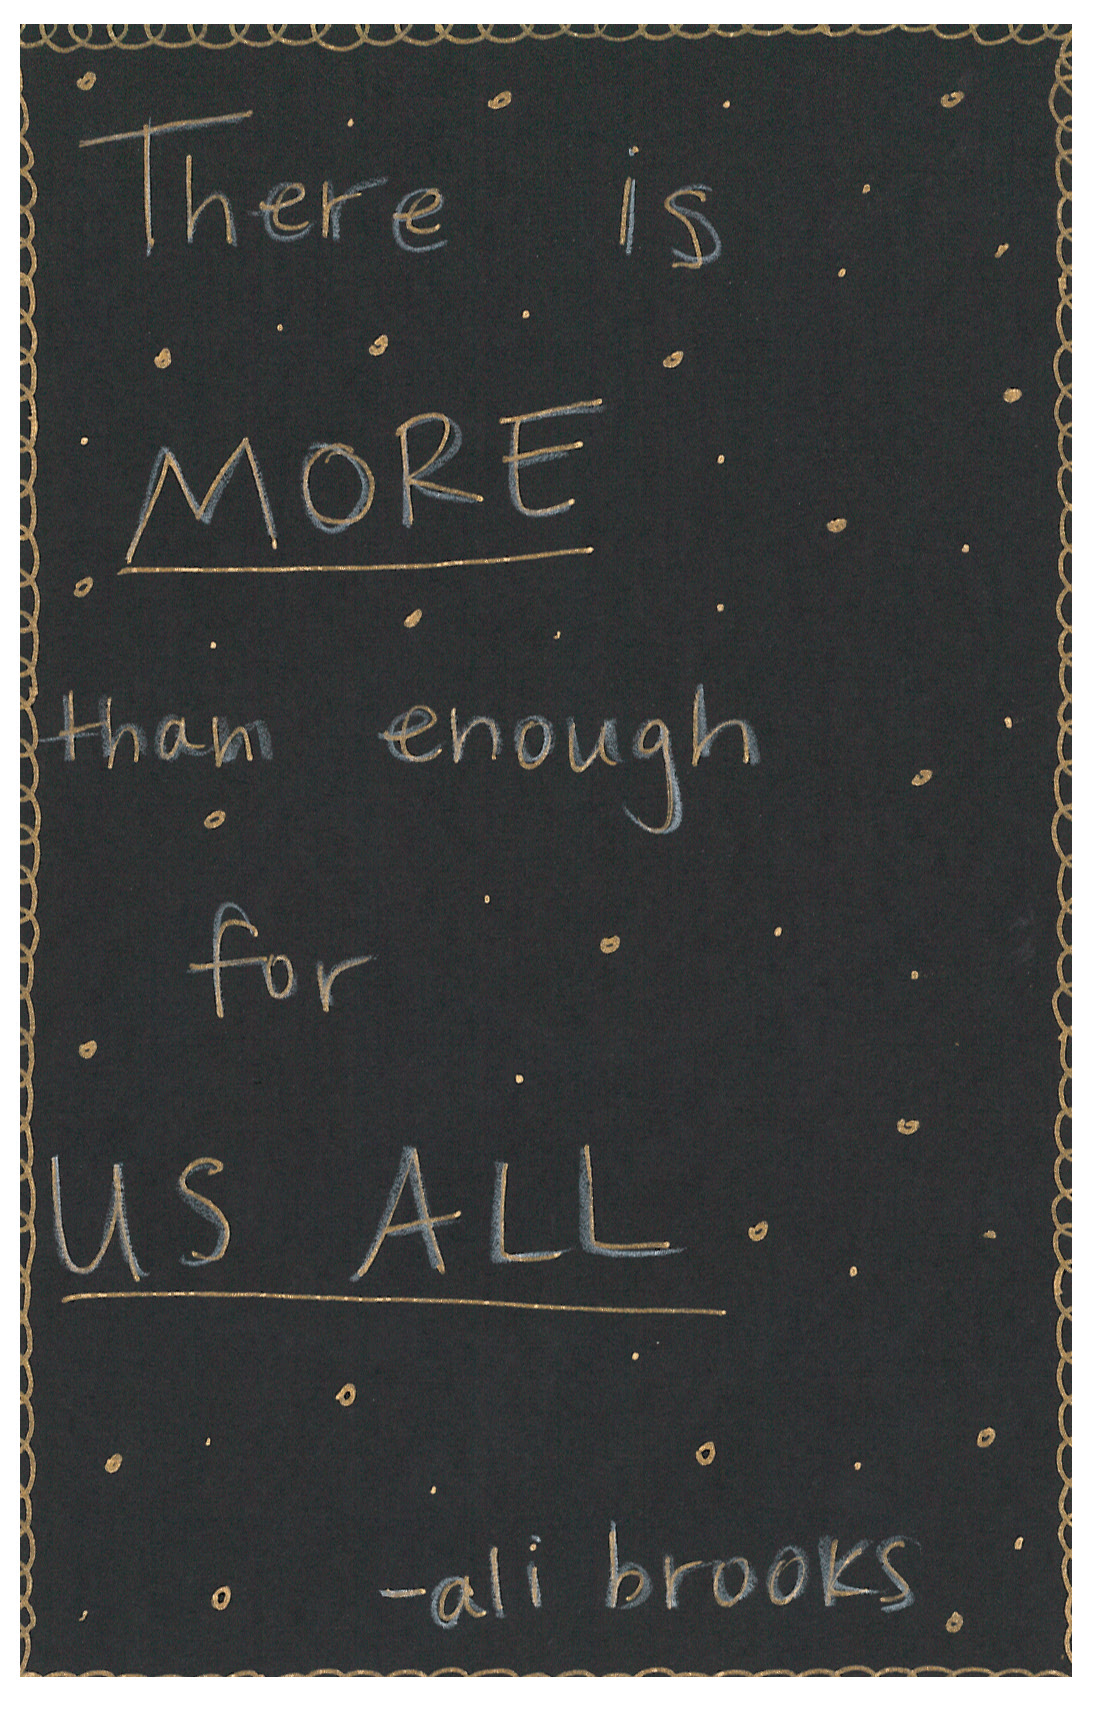 There is
MORE
than enough
for
US ALL
-ali brooks